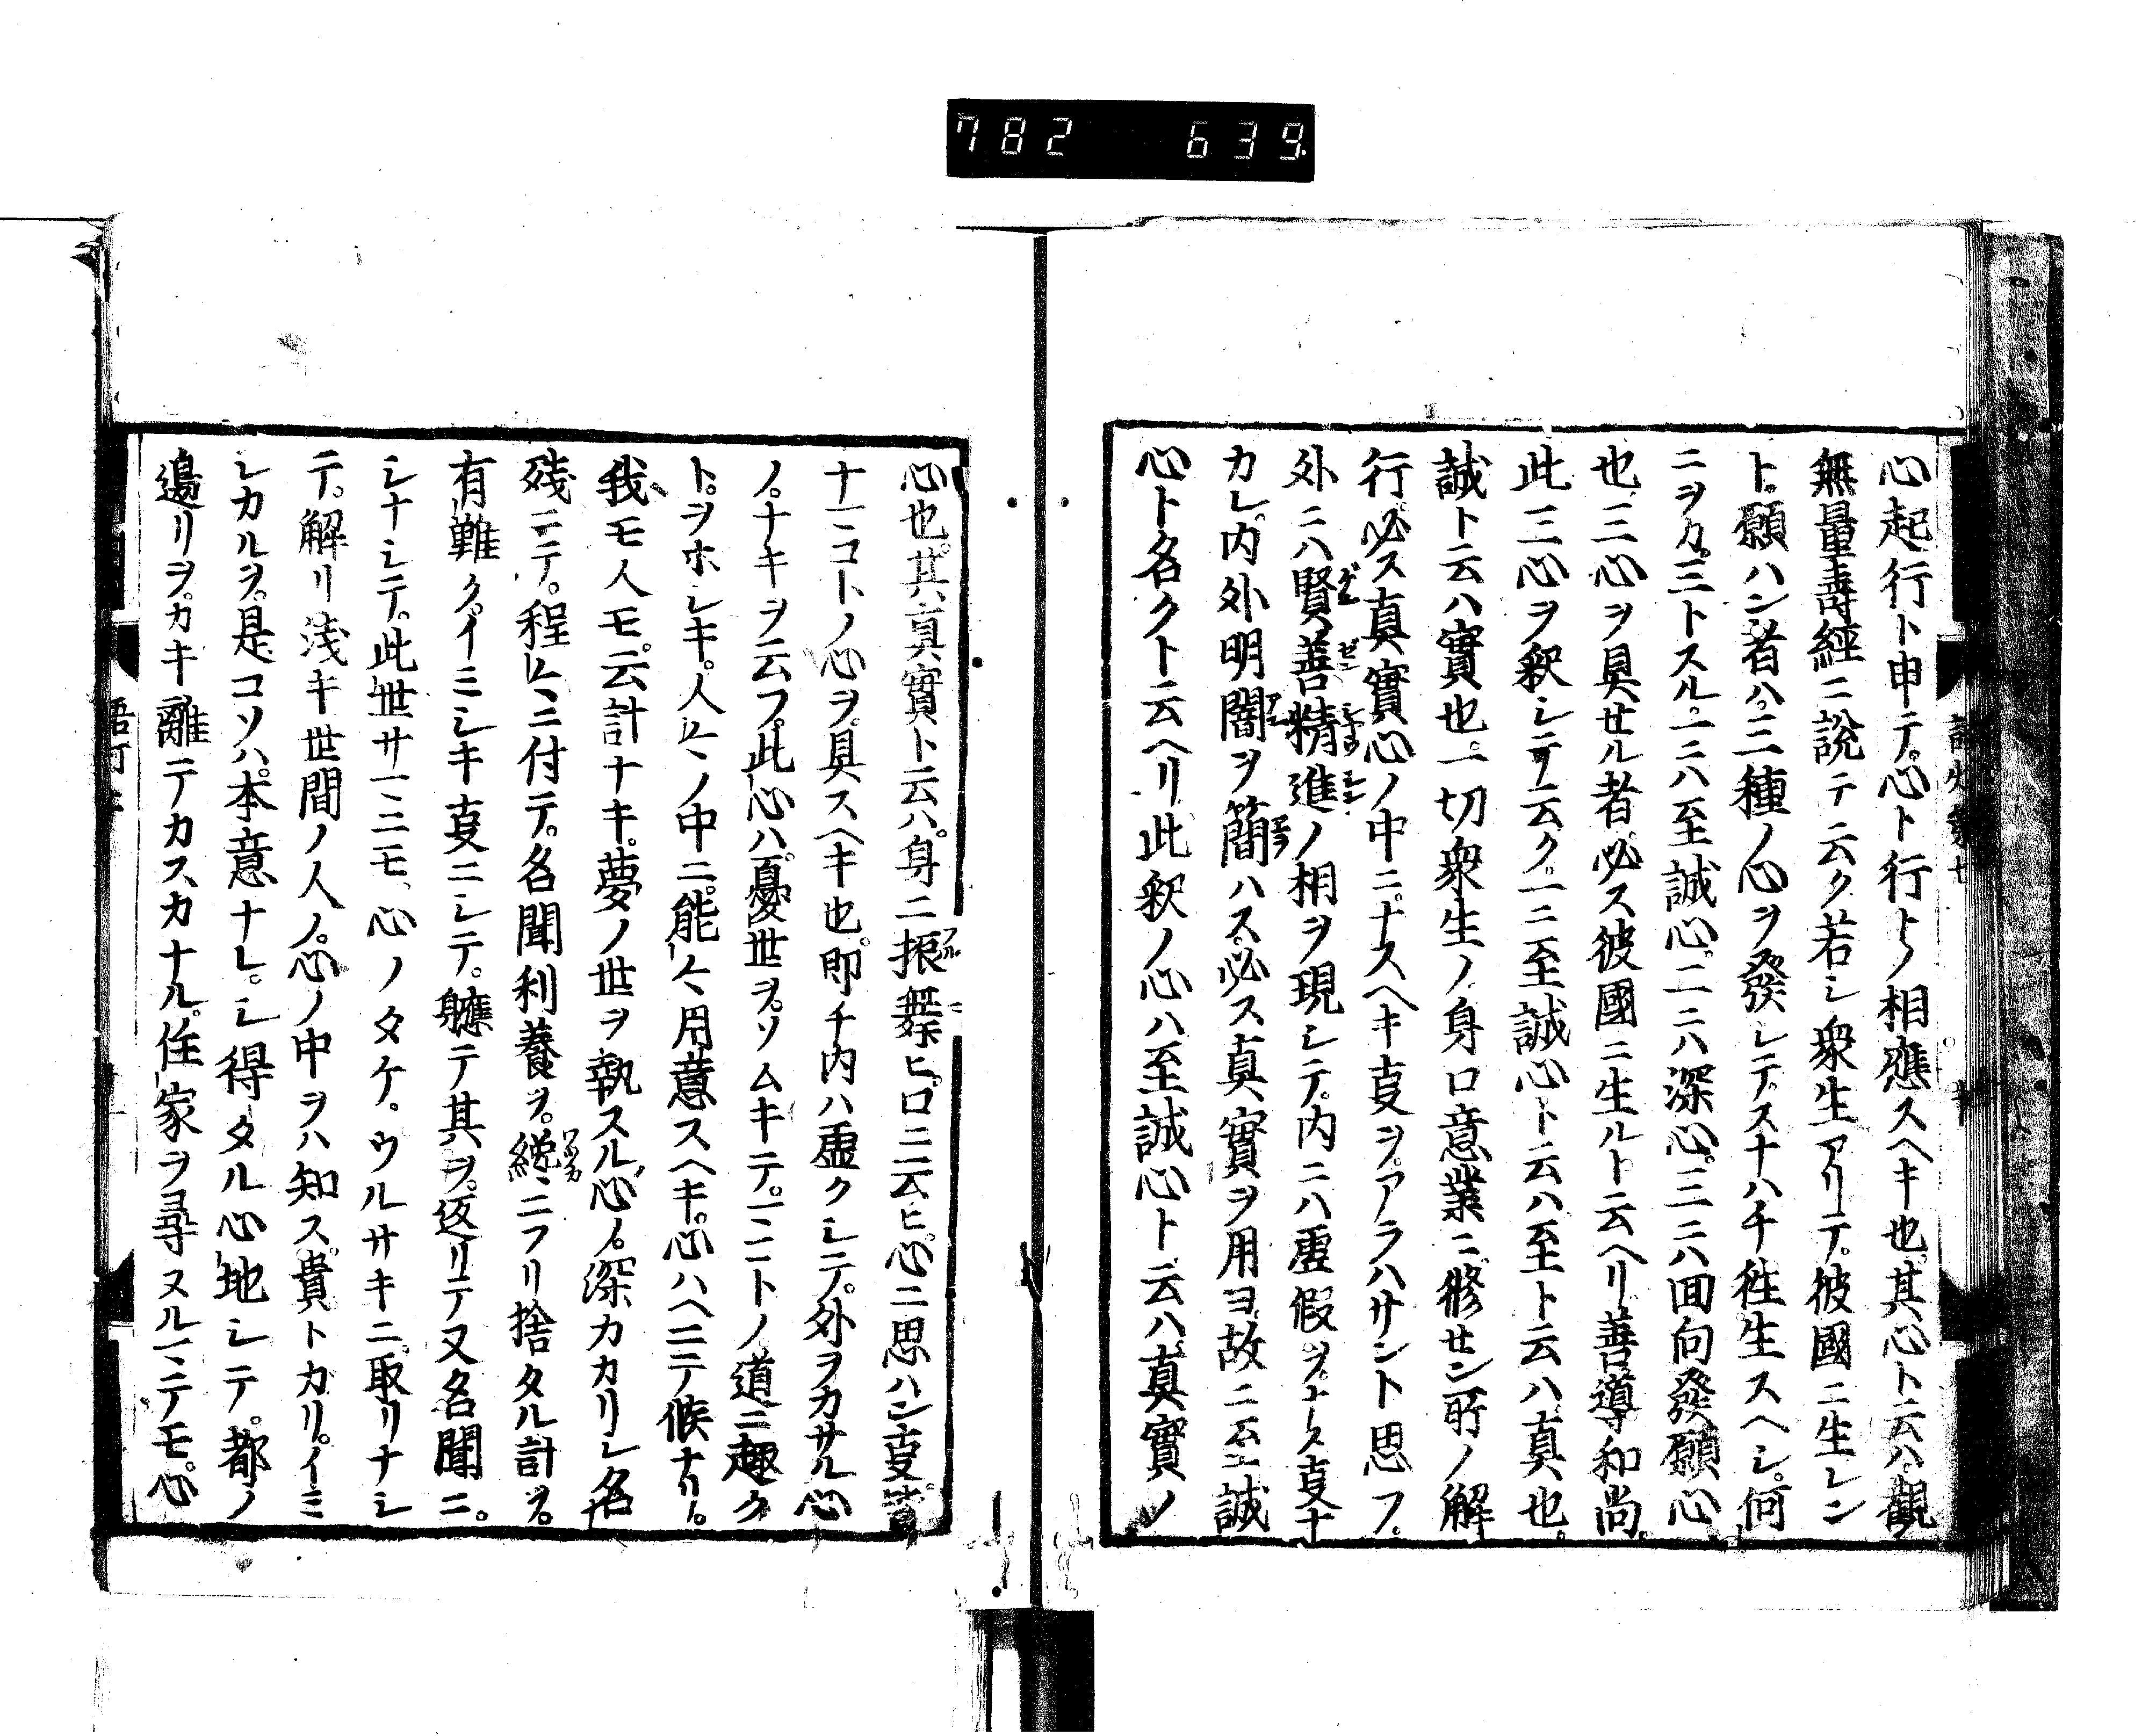 782 639
心起行ト申テ。心ト行トノ相應スヘキ也。其心ト云ハ觀
無量壽經ニ說テ云ク若シ衆生アリテ。彼國ニ生レン
ト。願ハン者ハ。三種ノ心ヲ發シテ。スナハチ徃生スヘシ。何
ニヲカ。三トスル。一ニハ至誠心。二ニハ深心。三ニハ回向發願心
也。三心ヲ具セル者必ス彼國ニ生ルト云ヘリ善導和尚。
此三心ヲ釈シテ云ク。一ニ至誠心ト云ハ至ト云ハ。真也。
誠ト云ハ實也。一切衆生ノ身口意業ニ。修センノ解
行。必ス真實心ノ中ニ。ナスヘキ叓ヲ。アラハサント思フ。
外ニハ賢善精進ノ相ヲ現シテ。内ニハ虛假ヲ。ナス叓ナ
カレ。内外明闇ヲ簡ハス。必ス真實ヲ用ヨ。故ニ至誠
心ト名クト云ヘリ此釈ノ心ハ至誠心ト。云ハ。真實ノ
心也。其真實ト云ハ。身ニ振舞ヒ。口ニ云ヒ。心ニ思ハン叓。皆
ナ。マコトノ心ヲ。具スヘキ也。即チ内ハ虛クシテ。外ヲカサル心
ノ。ナキヲ云フ。此心ハ。憂世ヲ。ソムキテ。マコトノ道ニ趣ク
ト。ヲホシキ。人々ノ中ニ。能々用意スヘキ。心ハヘニテ候ナリ。
我モ人モ。云計ナキ。夢ノ世ヲ執スル心ノ。深カカリシ名
残ニテ。程々ニ付テ。名聞利養ヲ。纔ニフリ捨タル計ヲ。
有難ク。イミシキ叓ニシテ。軈テ其ヲ。返リテ又名聞ニ。
シナシテ。此世サマニモ。心ノタケ。ウルサキニ。取リナシ
テ。解リ浅キ世間ノ人ノ。心ノ中ヲハ知ス。貴トカリ。イミ
シカルヲ。是コソハ。本意ナレ。シ得タル心地シテ。都ノ
邉リヲ。カキ離テカスカナル。住家ヲ尋ヌルマテモ。心